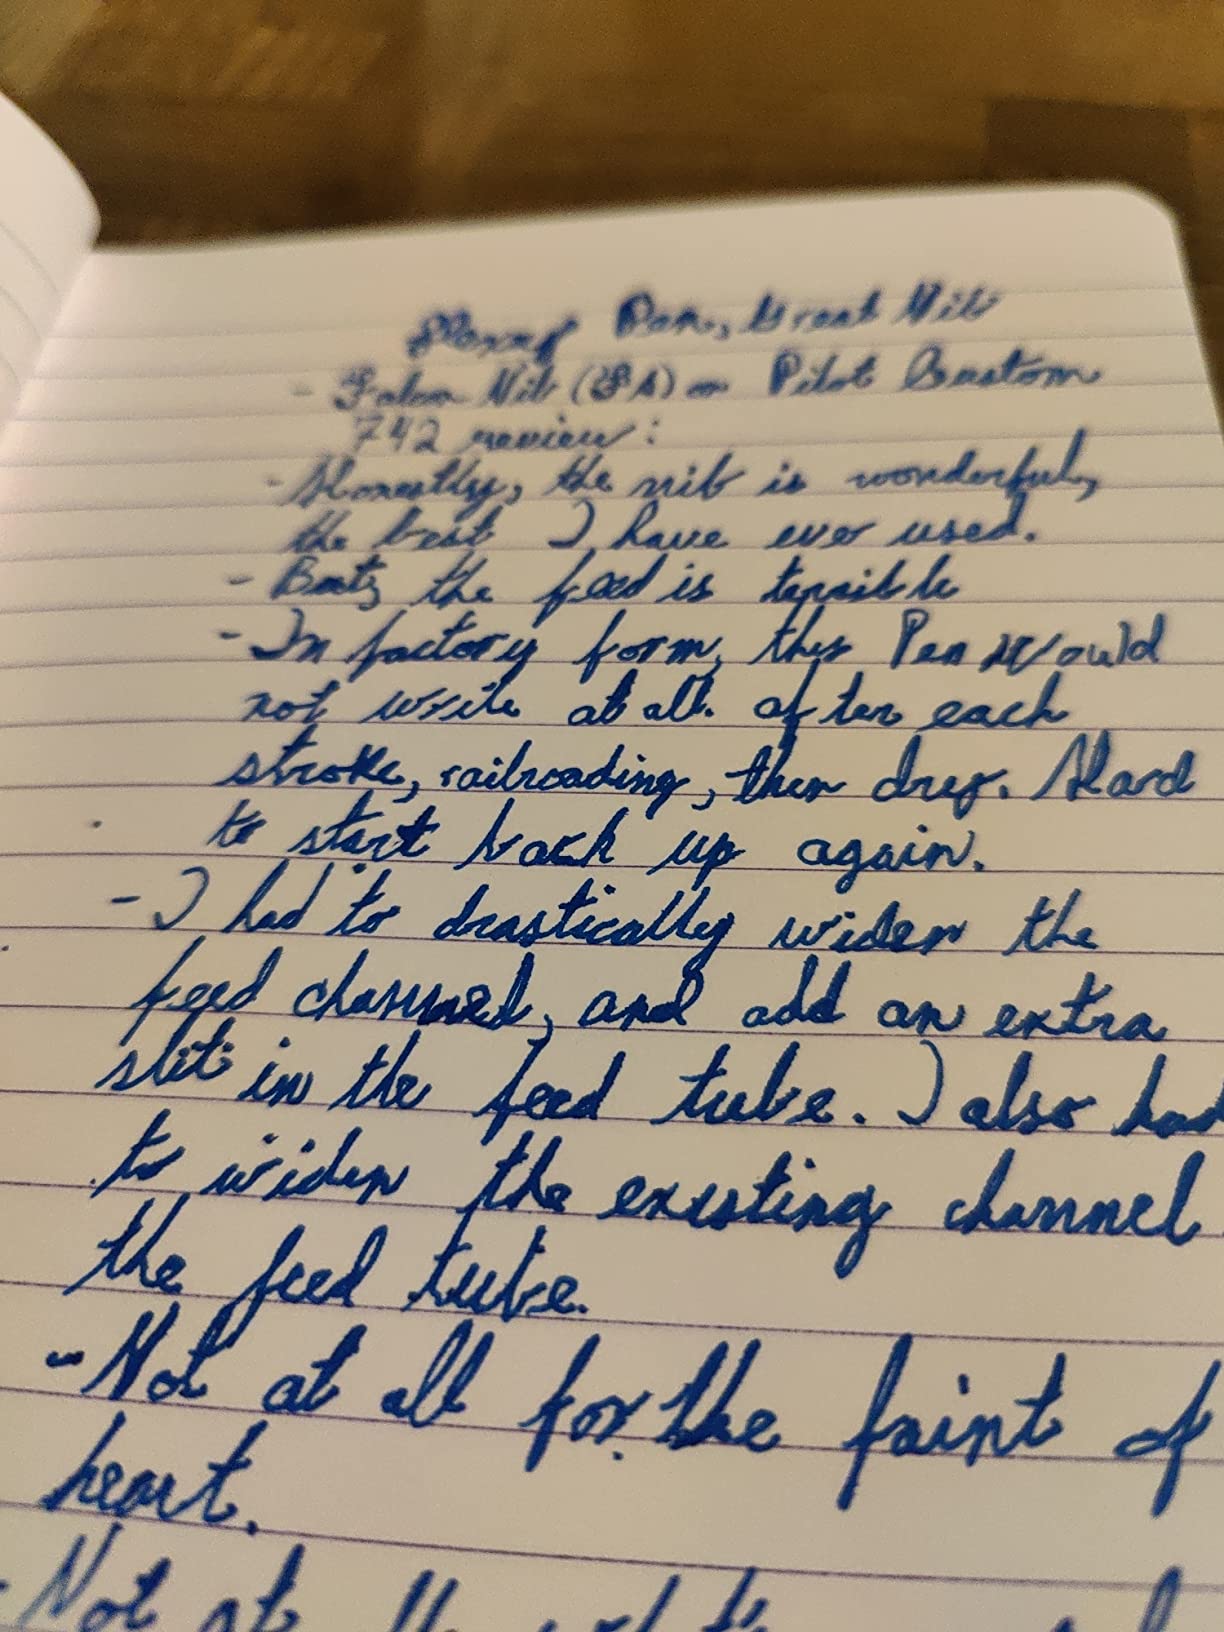 Pen, Great Nib
- Falcon Nib (FA) on Pilot Custom
742 review:
- Honestly, the nib is wonderful,
the best I have ever used.
- But, the feed is terrible
- In factory form, this Pen would
not write at all. after each
stroke, railroading, then dry. Hard
to start back up again.
- I had to drastically widen the
feed channel, and add an extra
slit in the feed tube. I also had
to widen the existing channel
the feed tube.
- Not at all for the faint of
heart.
- Not at all